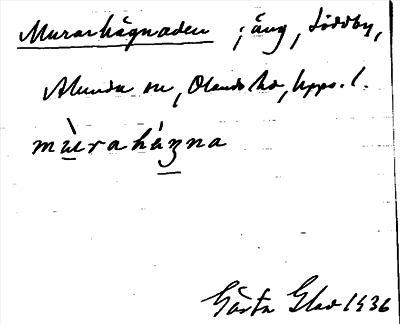 Murarhägnaden ; äng, Löddby,
Alunda sn, Olands hd, Upps. l.
mùraházna
Gösta Glad 1936